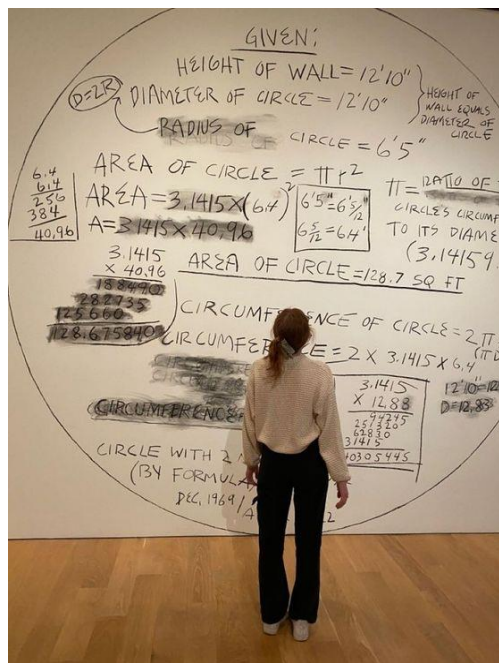 GIVEN:
HEIGHT OF WALL = 12'10"
D=2R
DIAMETER OF CIRCLE = 12'10"
HEIGHT OF
WALL EQUALS
DIAMETER OF
CIRCLE
RADIUS OF CIRCLE = 6'5"
AREA OF CIRCLE = πr²
6.4
6.4
256
384
40,96
AREA = 3.1415 × (6.4)²
A = 3.1415 × 40.96
6'5" = 6 5/12"
6 5/12 = 6.4'
π = RATIO OF
CIRCLE'S CIRCUMF
TO ITS DIAME
(3.14159
3.1415
× 40,96
188490
282735
125660
128.675840
AREA OF CIRCLE = 128.7 SQ FT
CIRCUMFERENCE OF CIRCLE = 2π
CIRCUMFE E = 2 × 3.1415 × 6,4
CIRCUMFERENCE
3.1415
× 12,83
94245
251320
62830
31415
40305445
12'10" = 12
D = 12,83
CIRCLE WITH 2
(BY FORMULA
DEC, 1969 /